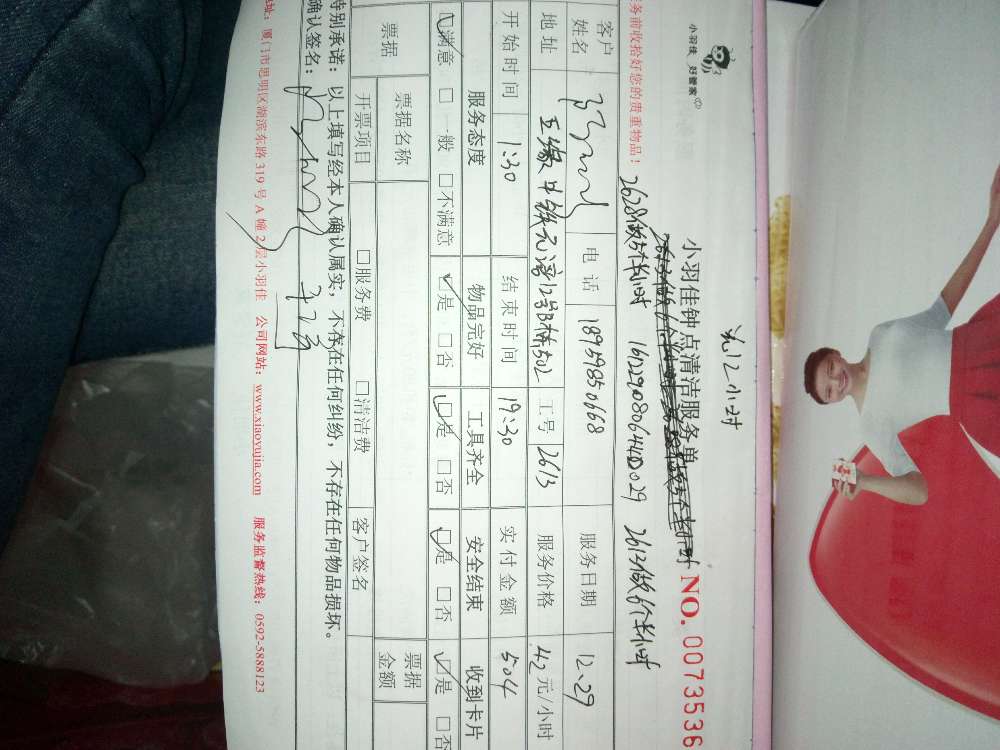 共12小时
小羽佳 好管家
小羽佳钟点清洁服务单 NO. 0073536
务前收拾好您的贵重物品！
2628做5个半小时 16122908064400029 2613做6个半小时
客户姓名 电话 18959850668 服务日期 12.29
地址 五缘 中铁元湾12号B栋502 工号 2613 服务价格 42 元/小时
开始时间 1:30 结束时间 19:30 实付金额 504
服务态度 物品完好 工具齐全 安全结束 收到卡片
☑满意 □一般 □不满意 ☑是 □否 ☑是 □否 ☑是 □否 ☑是 □否
票据 票据名称 票据金额
开票项目 □服务费 □清洁费 客户签名
特别承诺：以上填写经本人确认属实，不存在任何纠纷，不存在任何物品损坏。
确认签名：
地址：厦门市思明区湖滨东路 319 号 A 幢 2 层小羽佳 公司网站：www.xiaoyujia.com 服务监督热线：0592-5888123